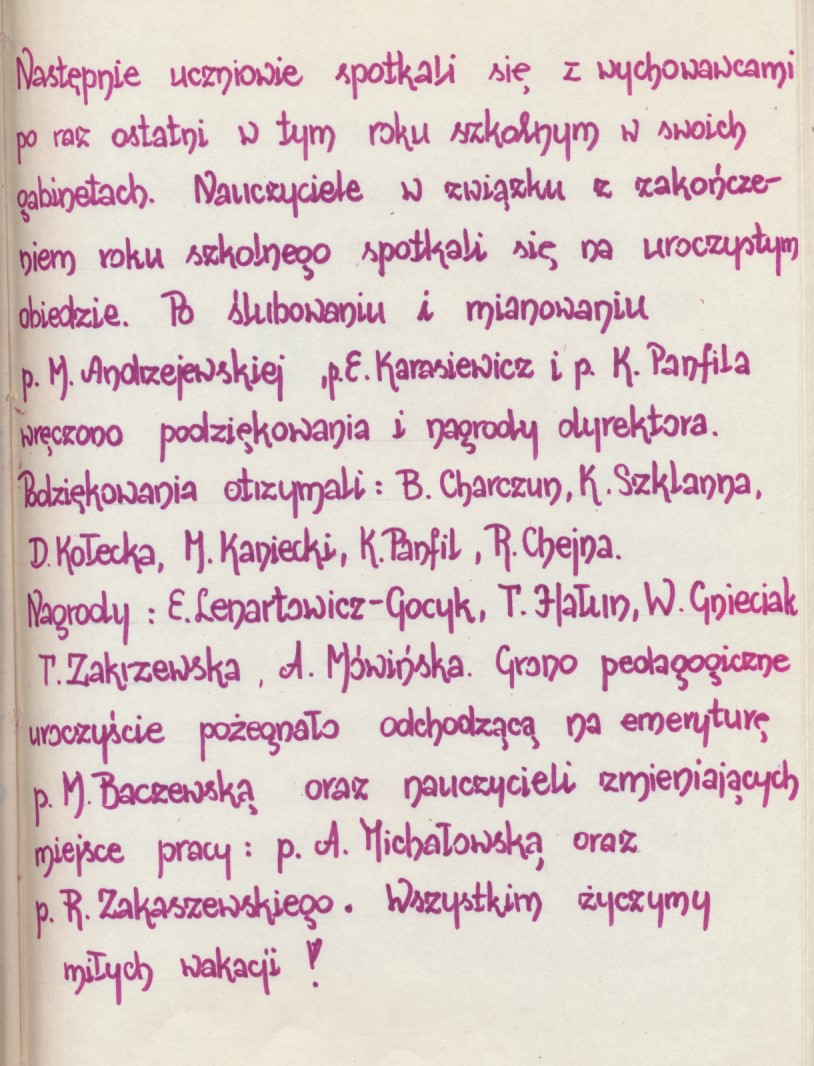 Następnie uczniowie spotkali się z wychowawcami
po raz ostatni w tym roku szkolnym w swoich
gabinetach. Nauczyciele w związku z zakończe-
niem roku szkolnego spotkali się na uroczystym
obiedzie. Po ślubowaniu i mianowaniu
p. M. Andrzejewskiej , p. E. Karasiewicz i p. K. Panfila
wręczono podziękowania i nagrody dyrektora.
Podziękowania otrzymali : B. Charczun, K. Szklanna,
D. Kołecka, M. Kaniecki, K. Panfil , R. Chejna.
Nagrody : E. Lenartowicz-Gocyk, T. Hałun, W. Gnieciak
T. Zakrzewska , A. Mówińska. Grono pedagogiczne
uroczyście pożegnało odchodzącą na emeryturę
p. M. Baczewską oraz nauczycieli zmieniających
miejsce pracy : p. A. Michałowską oraz
p. R. Zakaszewskiego. Wszystkim życzymy
miłych wakacji !